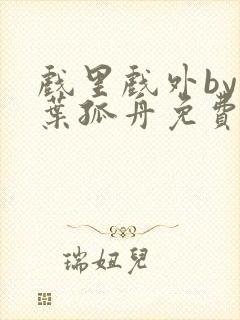 戲里戲外by
葉孤舟免費
瑞妞兒